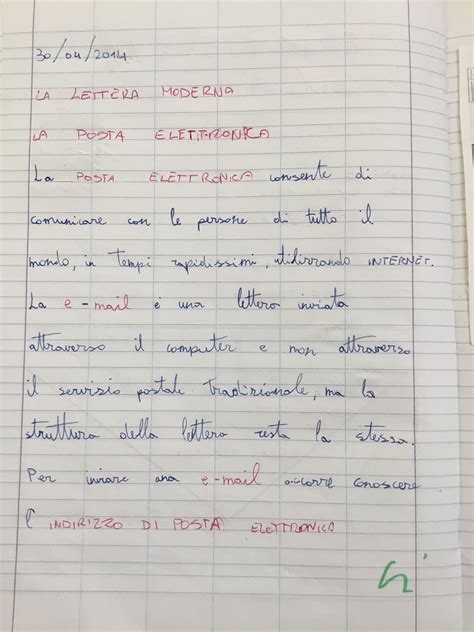 30/04/2014
LA LETTERA MODERNA
LA POSTA ELETTRONICA
La POSTA ELETTRONICA consente di
comunicare con le persone di tutto il
mondo, in tempi rapidissimi, utilizzando INTERNET.
La e-mail è una lettera inviata
attraverso il computer e non attraverso
il servizio postale tradizionale, ma la
struttura della lettera resta la stessa.
Per inviare una e-mail occorre conoscere
l'INDIRIZZO DI POSTA ELETTRONICA